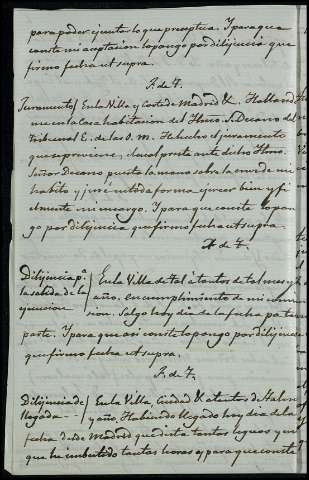 para poder ejecutar lo que preceptua. Y para que
conste mi aceptacion lo pongo por dilijencia que
firmo fecha ut supra.
F. de T.
Juramento / En la Villa y Corte de Madrid &. Halland
me en la Casa habitacion del Ilmo. S. Decano del
Tribunal E. de las O. M. He hecho el juramento
que se previene, el cual presté ante dicho Ilmo.
Señor Decano puesta la mano sobre la cruz de mi
habito y juré en toda forma ejercer bien y fi
elmente mi cargo. Y para que conste lo pon
go por dilijencia que firmo fecha ut supra.
F. de T.
Dilijencia pª
la salida de la / En la Villa de tal á tantos de tal mes y
ejecucion / año. en cumplimiento de mi comi
sion. Salgo hoy dia de la fecha pa tal
parte. Y para que asi conste lo pongo por dilijencia
que firmo fecha ut supra.
F. de T.
Dilijencia de / En la Villa, Ciudad &. á tantos de tal mes
llegada / y año. Habiendo llegado hoy dia de la
fecha desde Madrid que dista tantas leguas y en
que he invertido tantas horas y para que conste